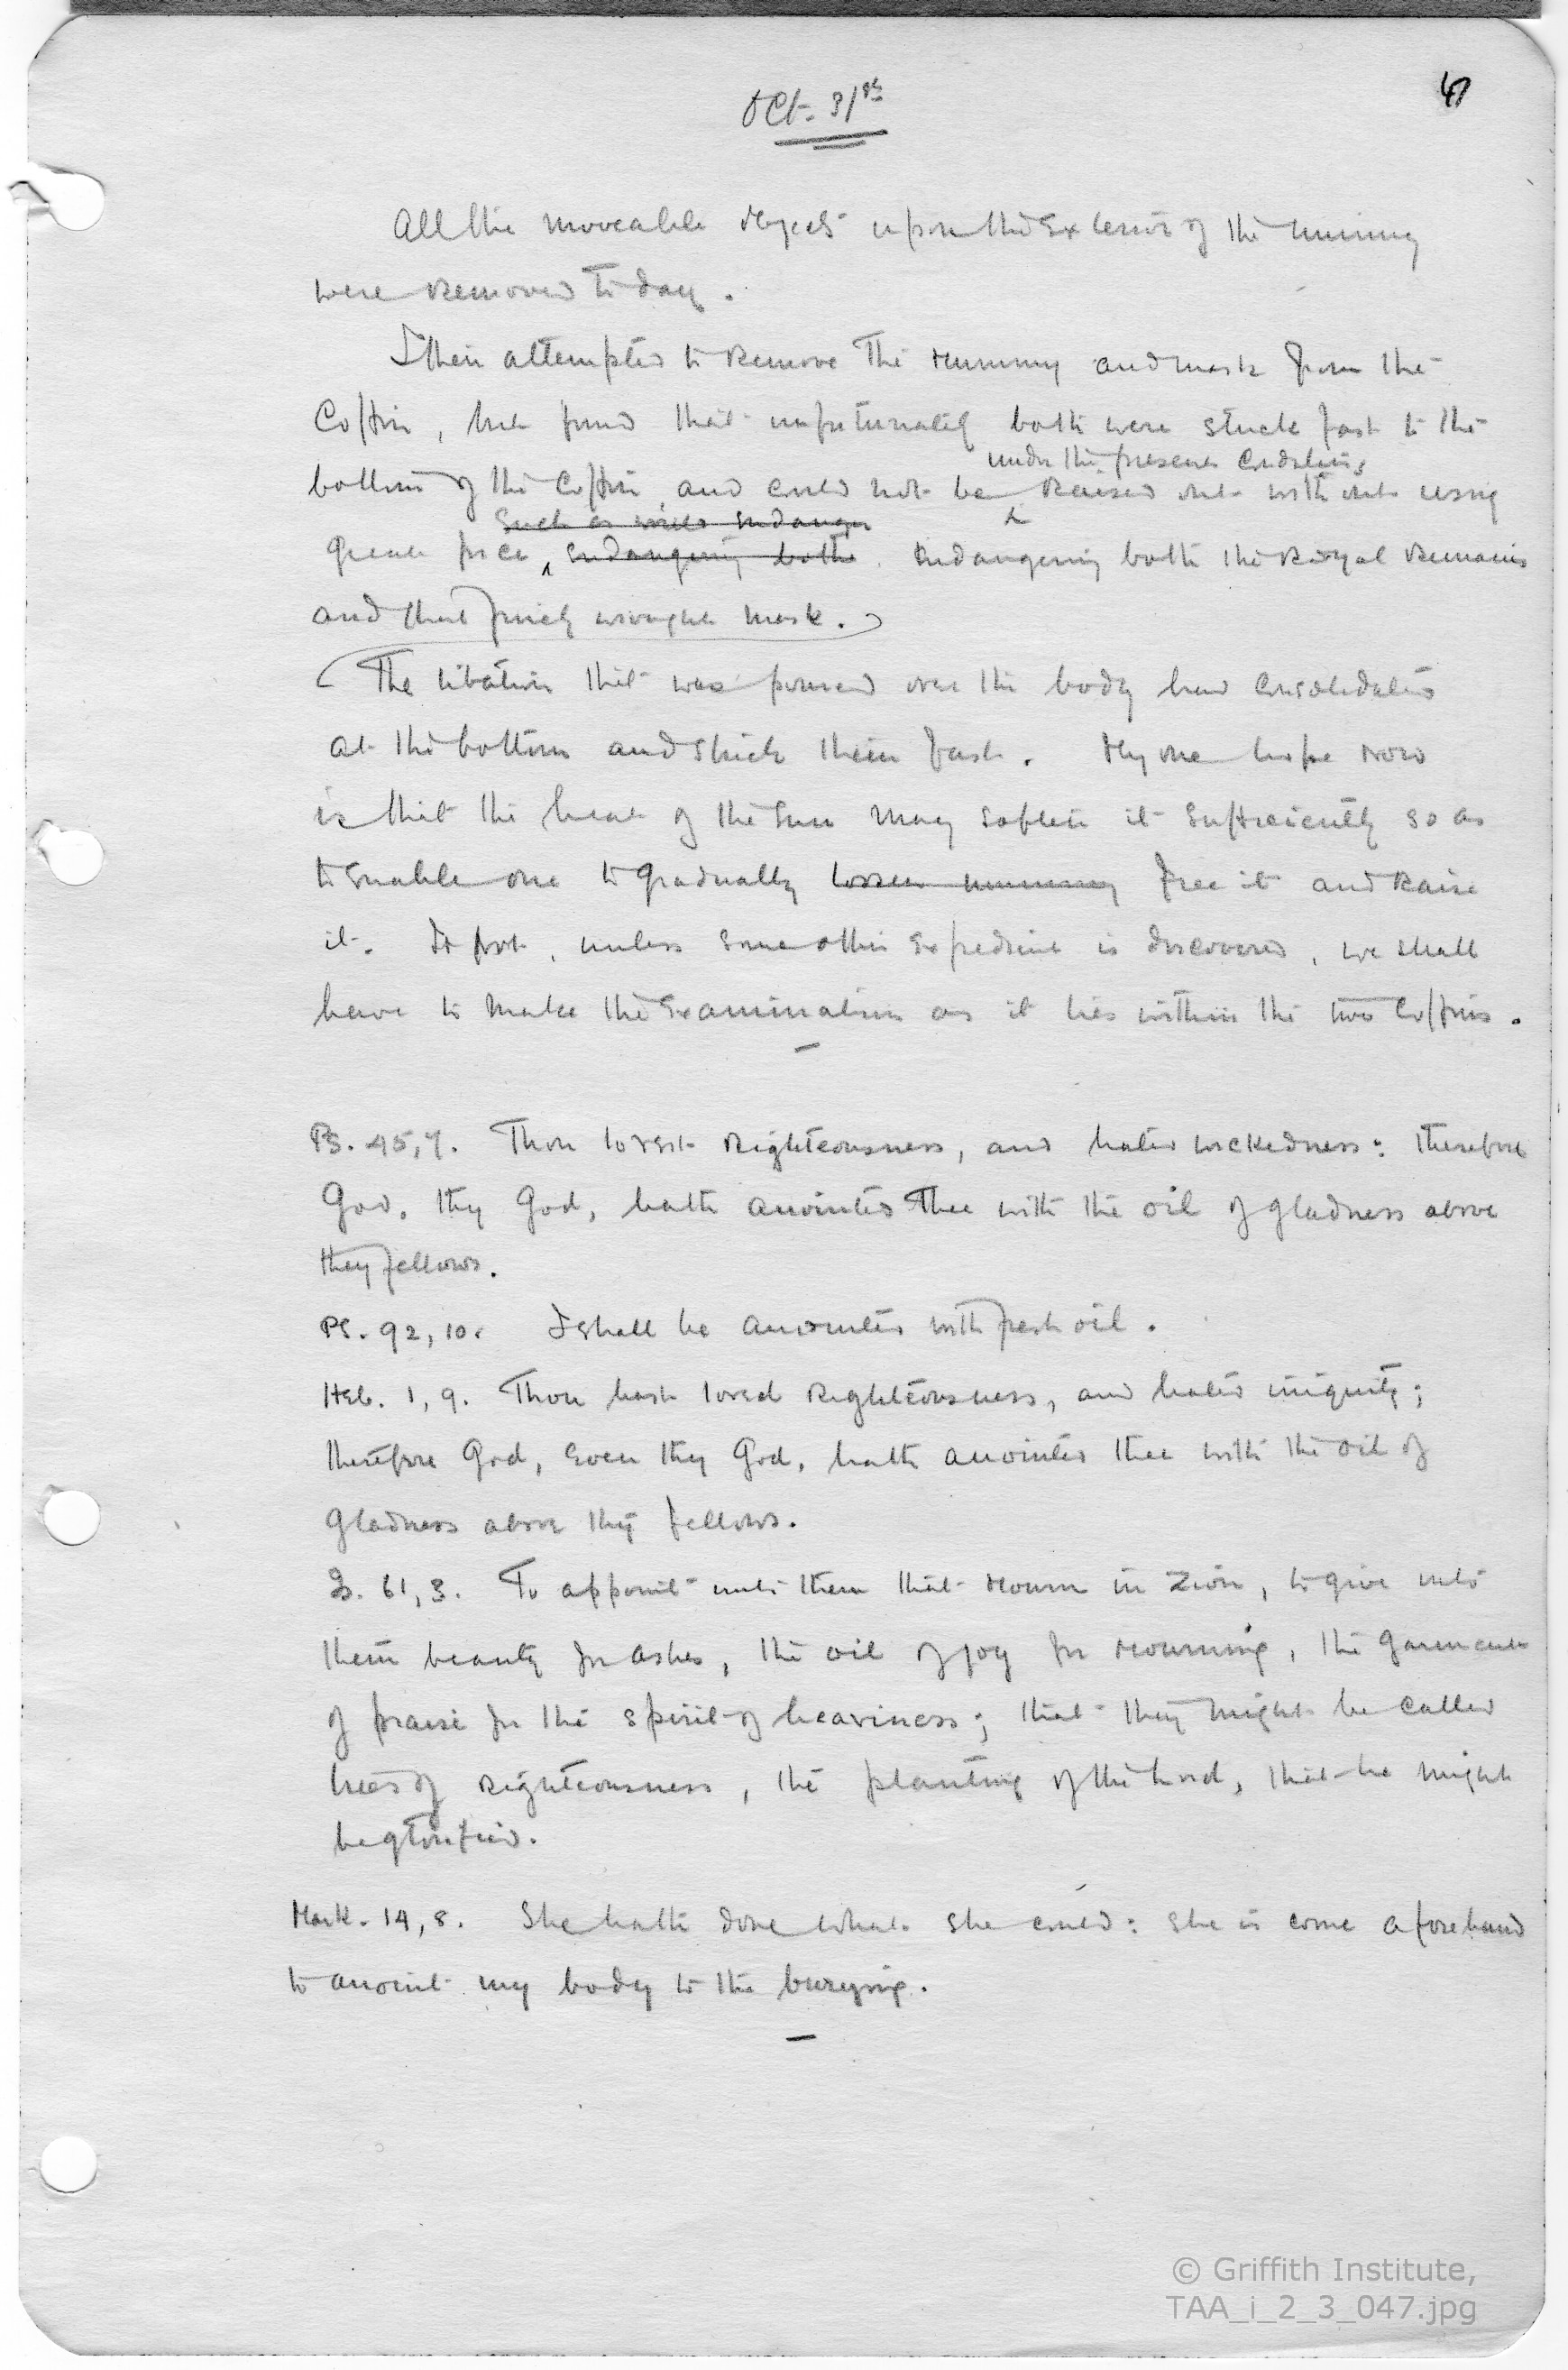 Oct. 31st
47
All the moveable objects upon the exterior of the mummy
were removed to day.
I then attempted to remove the mummy and mask from the
Coffin, but found that unfortunately both were stuck fast to the
under the present conditions
bottom of the Coffin and could not be raised out without using
such as would endanger
great force, endangering both endangering both the Royal Remains
and that finely wrought mask.
The libation that was poured over the body had consolidated
at the bottom and stuck them fast. My one hope now
is that the heat of the sun may soften it sufficiently so as
to enable one to gradually loosen mummy free it and raise
it. If not, unless some other expedient is discovered, we shall
have to make the examination as it lies within the two Coffins.
Ps. 45,7. Thou lovest righteousness, and hated wickedness: therefore
God, thy God, hath anointed Thee with the oil of gladness above
they fellows.
Ps. 92,10. I shall be anointed with fresh oil.
Heb. 1,9. Thou hast loved righteousness, and hated iniquity;
therefore God, even thy God, hath anointed thee with the oil of
gladness above thy fellows.
Is. 61,3. To appoint unto them that mourn in Zion, to give unto
them beauty for ashes, the oil of joy for mourning, the garment
of praise for the spirit of heaviness; that they might be called
trees of righteousness, the planting of the Lord, that he might
be glorified.
Mark. 14,8. She hath done what she could: she is come aforehand
to anoint my body to the burying.
© Griffith Institute,
TAA_i_2_3_047.jpg